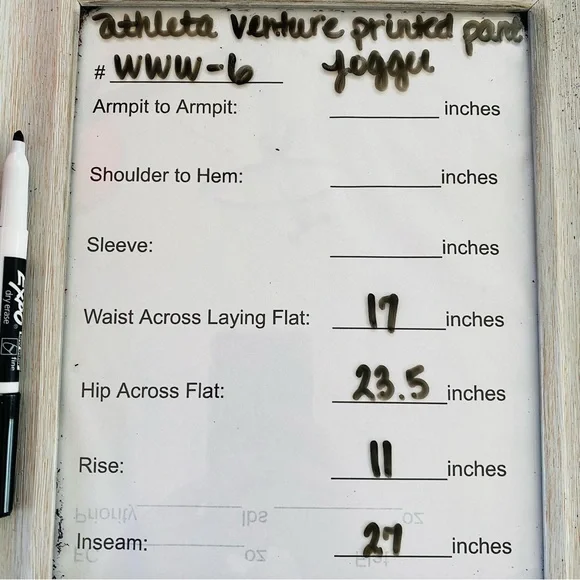 athleta venture printed pant
# WWW-6 jogger
Armpit to Armpit: inches
Shoulder to Hem: inches
Sleeve: inches
Waist Across Laying Flat: 17 inches
Hip Across Flat: 23.5 inches
Rise: 11 inches
Priority lbs oz
Inseam: 27 inches
FC oz Flat
EXPO
dry erase
fine